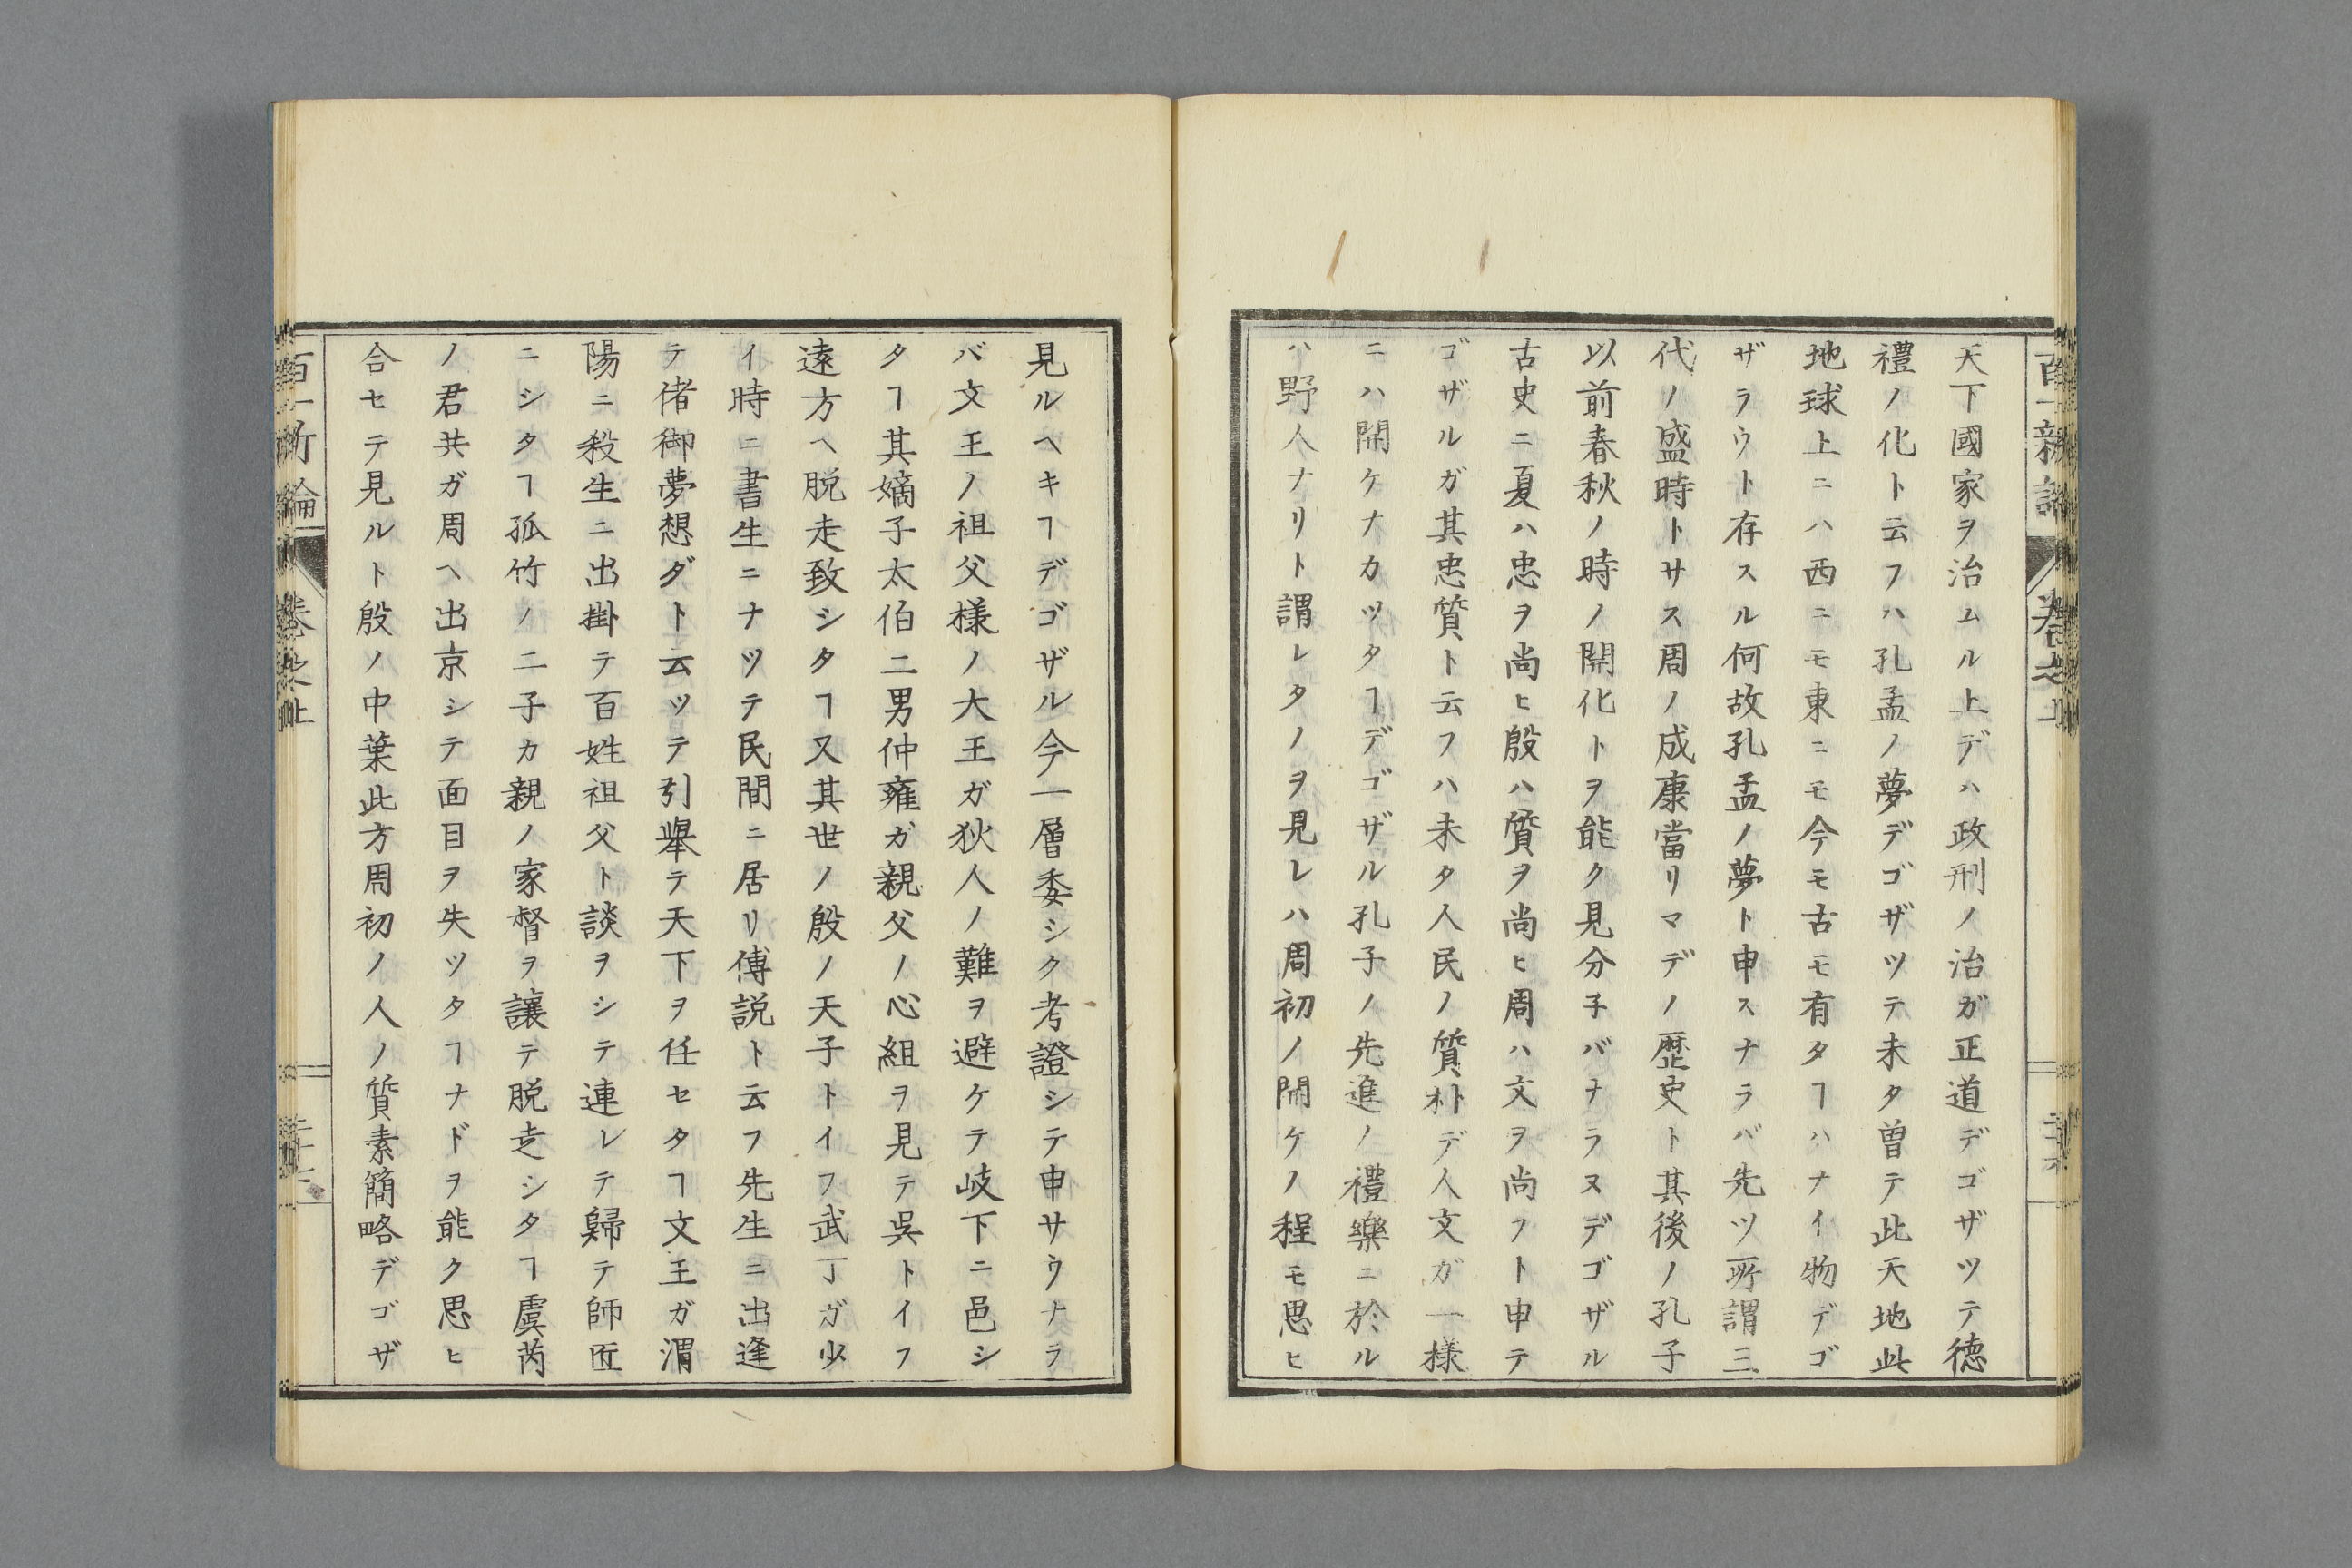 天下國家ヲ治ムル上デハ政刑ノ治ガ正道デゴザツテ徳
禮ノ化ト云フハ孔孟ノ夢デゴザツテ未タ曽テ此天地此
地球上ニハ西ニモ東ニモ今モ古モ有タヿハナイ物デゴ
ザラウト存スル何故孔孟ノ夢ト申スナラバ先ツ所謂三
代ノ盛時トサス周ノ成康當リマデノ歴史ト其後ノ孔子
以前春秋ノ時ノ開化トヲ能ク見分子バナラヌデゴザル
古史ニ夏ハ忠ヲ尚ヒ殷ハ質ヲ尚ヒ周ハ文ヲ尚フト申テ
ゴザルガ其忠質ト云フハ未タ人民ノ質朴デ人文ガ一様
ニハ開ケナカツタヿデゴザル孔子ノ先進ノ禮樂ニ於ル
ハ野人ナリト謂レタノヲ見レハ周初ノ開ケノ程モ思ヒ
見ルヘキヿデゴザル今一層委シク考證シテ申サウナラ
バ文王ノ祖父様ノ大王ガ狄人ノ難ヲ避ケテ岐下ニ邑シ
タヿ其嫡子太伯二男仲雍ガ親父ノ心組ヲ見テ呉トイフ
遠方ヘ脱走致シタヿ又其世ノ殷ノ天子トイフ武丁ガ少
イ時ニ書生ニナツテ民間ニ居リ傅説ト云フ先生ニ出逢
テ偖御夢想ダト云ツテ引擧テ天下ヲ任セタヿ文王ガ渭
陽ニ殺生ニ出掛テ百姓祖父ト談ヲシテ連レテ歸テ師匠
ニシタヿ孤竹ノ二子カ親ノ家督ヲ讓テ脱走シタヿ虞芮
ノ君共ガ周ヘ出京シテ面目ヲ失ツタヿナドヲ能ク思ヒ
合セテ見ルト殷ノ中葉此方周初ノ人ノ質素簡略デゴザ
百一新論
卷之上